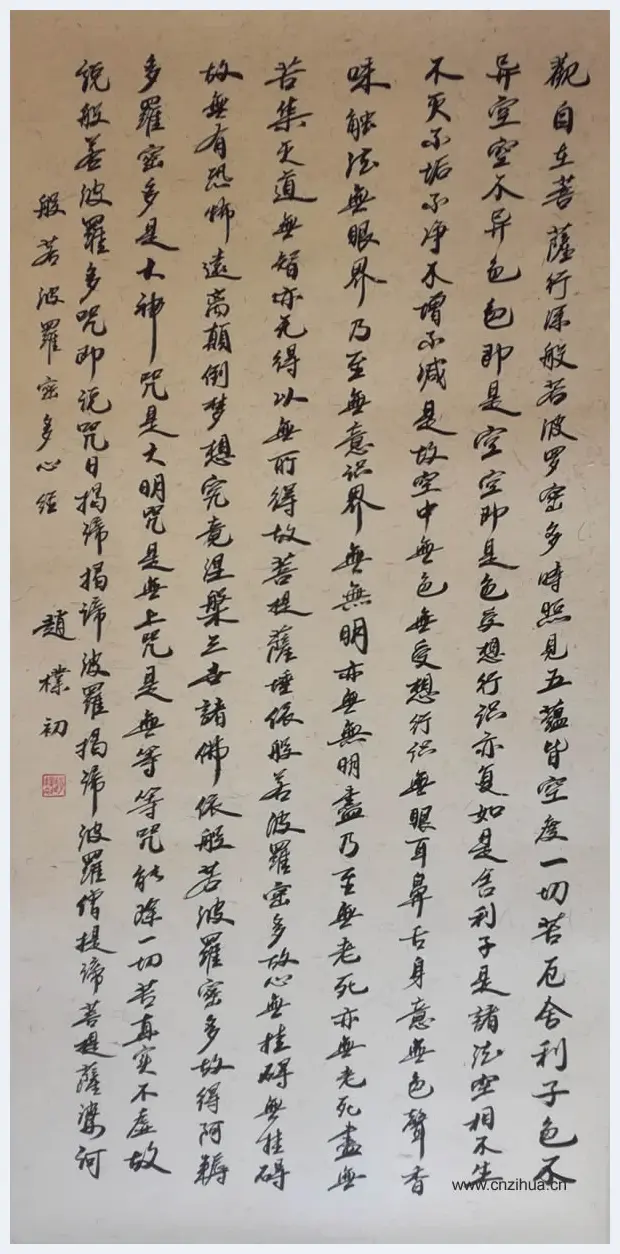 觀自在菩薩行深般若波罗密多時照見五蘊皆空度一切苦厄舍利子色不
异空空不异色色即是空空即是色受想行识亦复如是舍利子是諸法空相不生
不灭不垢不净不增不减是故空中無色無受想行识無眼耳鼻舌身意無色聲香
味触法無眼界乃至無意识界無無明亦無無明盡乃至無老死亦無老死盡無
苦集灭道無智亦无得以無所得故菩提薩埵依般若波羅密多故心無挂碍無挂碍
故無有恐怖遠离顛倒梦想究竟涅槃三世諸佛依般若波羅密多故得阿耨
多羅密多是大神咒是大明咒是無上咒是無等等咒能除一切苦真实不虚故
说般若波羅多咒即说咒曰揭谛揭谛波羅揭谛波羅僧提谛菩提薩婆诃
般若波羅密多心经
趙樸初
www.cnzihua.cn